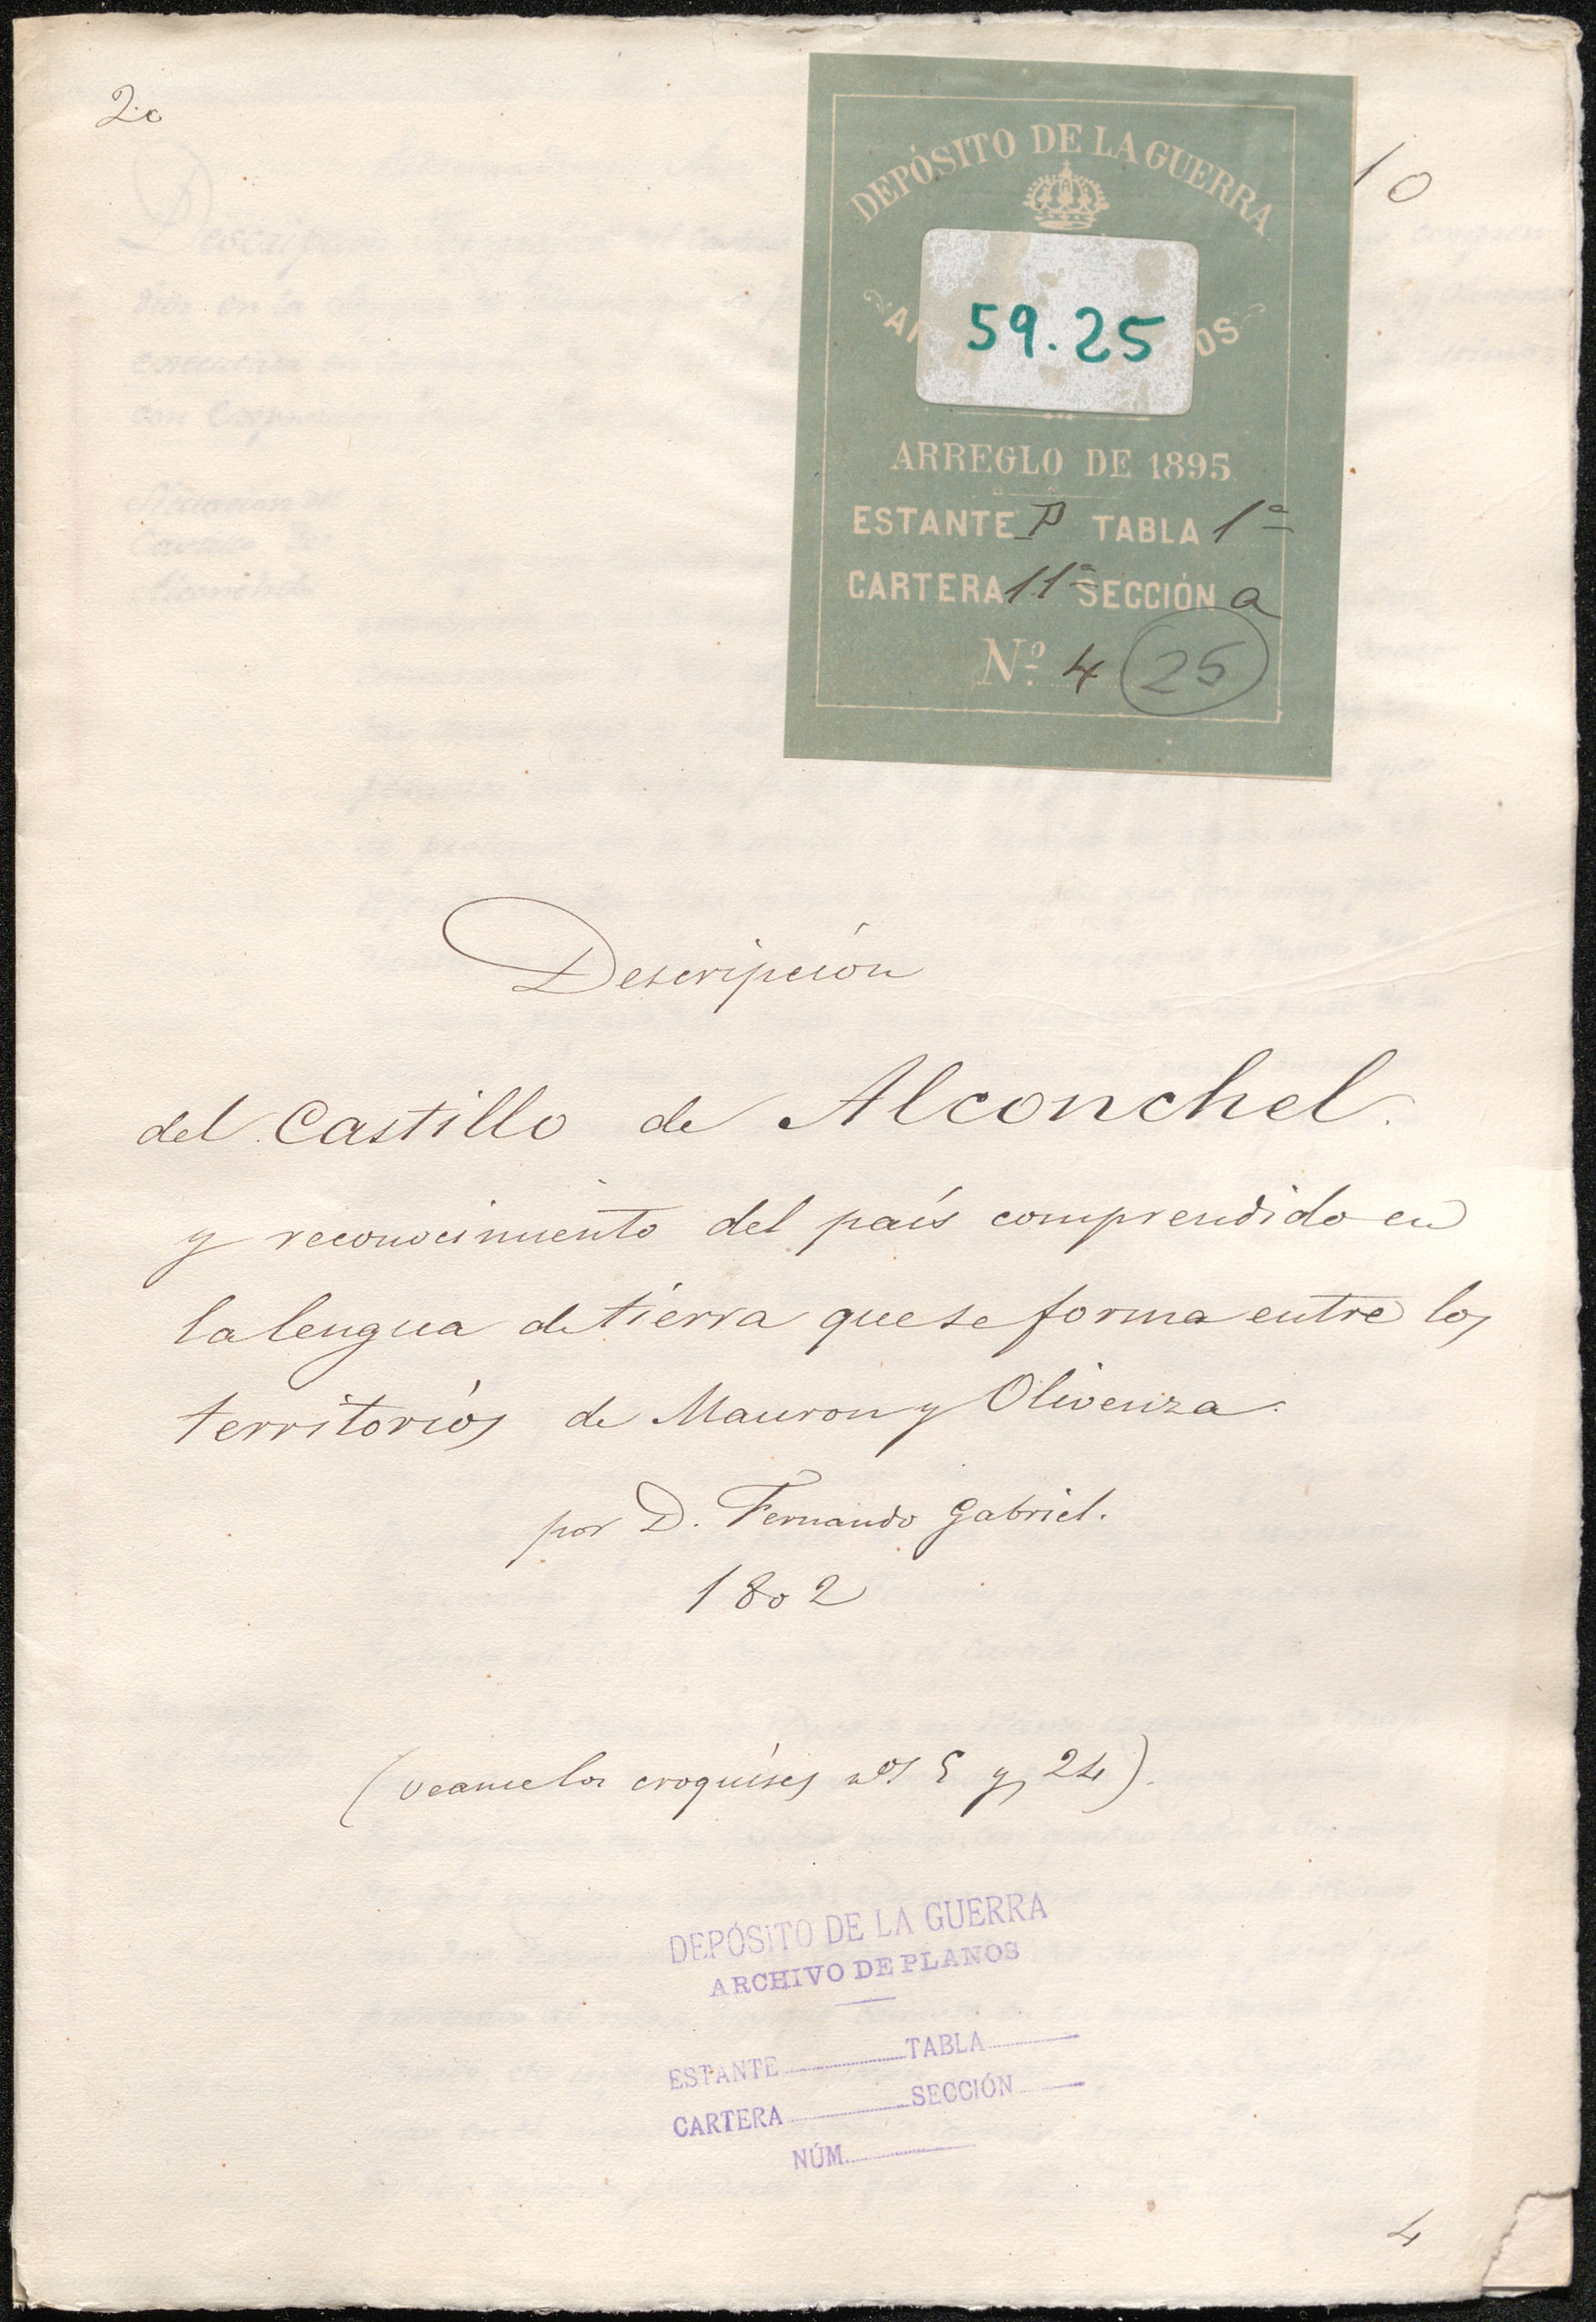 2.c
10
DEPÓSITO DE LA GUERRA
59.25
ARREGLO DE 1895
ESTANTE P TABLA 1ª
CARTERA 11ª SECCIÓN a
Nº 4 25
Descripción
del Castillo de Alconchel.
y reconocimiento del país comprendido en
la lengua de tierra que se forma entre los
territorios de Mauron y Olivenza.
por D. Fernando Gabriel.
1802
(veanse los croquises nos 5 y 24).
DEPÓSITO DE LA GUERRA
ARCHIVO DE PLANOS
ESTANTE TABLA
CARTERA SECCIÓN
NÚM.
4